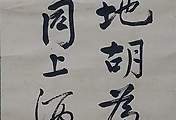 地胡為
同上酒